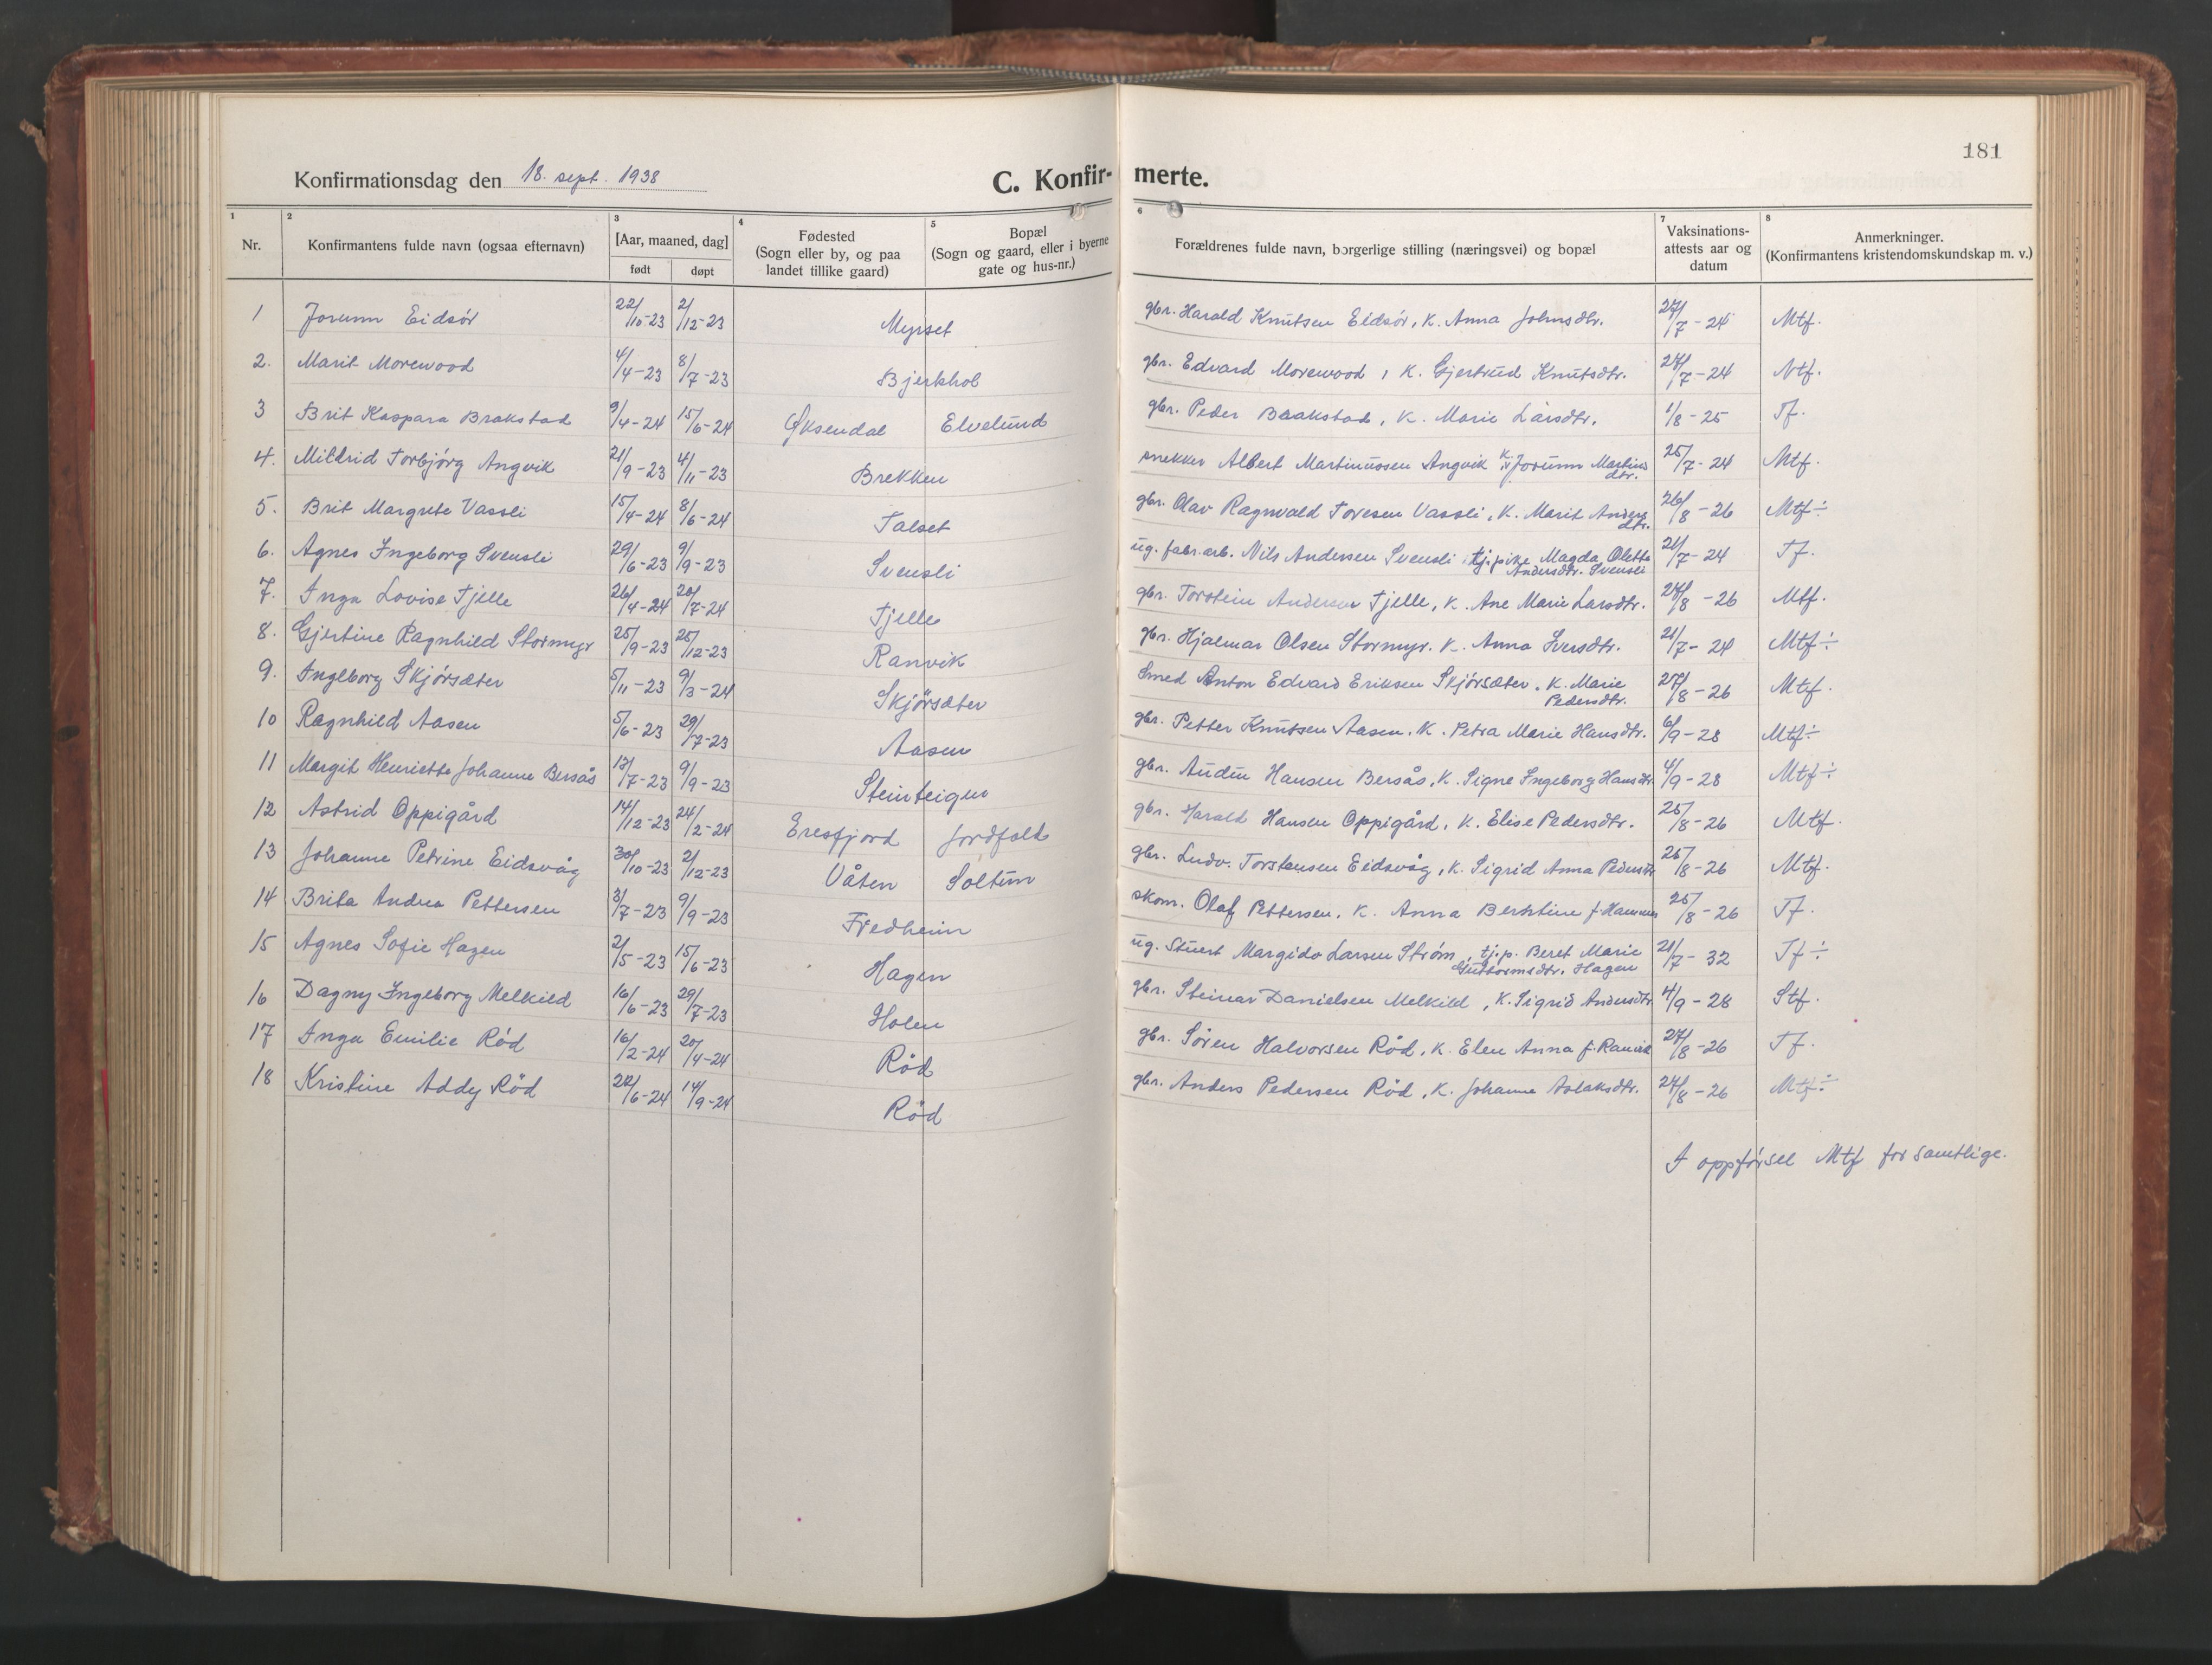 181
Konfirmationsdag den 18. sept. 1938
C. Konfir- merte.
1 2 3 4 5 6 7 8
Nr.
Konfirmantens fulde navn (ogsaa efternavn)
[Aar, maaned, dag]
født døpt
Fødested
(Sogn eller by, og paa
landet tillike gaard)
Bopæl
(Sogn og gaard, eller i byerne
gate og hus-nr.)
Forældrenes fulde navn, borgerlige stilling (næringsvei) og bopæl
Vaksinations-
attests aar og
datum
Anmerkninger.
(Konfirmantens kristendomskundskap m. v.)
1 Jorunn Eidsör 22/10-23 2/12-23 Myrset gbr. Harald Knutsen Eidsör, K. Anna Johnsdtr. 27/7-24 Mtf.
2. Marit Morewood 4/4-23 8/7-23 Bjerkhol gbr. Edvard Morewood, K. Gjertrud Knutsdtr. 7-24 Ntf.
3 Brit Kaspara Brakstad 9/4-24 15/6-24 Øksendal Elvelund gbr. Peder Brakstad, K. Marie Larsdtr. 1/8-25 Tf.
4. Mildrid Torbjörg Angvik 21/9-23 4/11-23 Brekken snekker Albert Martinussen Angvik K. Jorunn Martins
dtr. 25/7-24 Mtf.
5. Brit Margrete Vassli 15/4-24 8/6-24 Talset gbr. Olav Ragnvald Toresen Vassli, K. Marit Anders
dtr. 26/8-26 Mtf ÷
6. Agnes Ingeborg Svensli 29/6-23 9/9-23 Svensli ug. fabr.arb. Nils Andersen Svensli, tj.pike Magda Olette
Andersdtr. Svensli 21/7-24 Tf.
7. Inga Lovise Tjelle 26/4-24 20/7-24 Tjelle gbr. Torstein Andersen Tjelle, K. Ane Marie Larsdtr. 8-26 Mtf.
8. Gjertine Ragnhild Stormyr 25/9-23 25/12-23 Ranvik gbr. Hjalmar Olsen Stormyr. K. Anna Iversdtr. 21/7-24 Mtf ÷
9. Ingeborg Skjörsæter 5/11-23 9/3-24 Skjörsæter Smed Anton Edvard Eriksen Skjörsæter, K. Marie
Pedersdtr. 27/8-26 Mtf.
10 Ragnhild Aasen 5/6-23 29/7-23 Aasen gbr. Petter Knutsen Aasen. K. Petra Marie Hansdtr. 6/9-28 Mtf ÷
11 Margit Henriette Johanne Bersås 13/7-23 9/9-23 Steinteigen gbr. Audun Hansen Bersås, K. Signe Ingeborg Hansdtr. 4/9-28 Mtf ÷
12 Astrid Oppigård 14/12-23 24/2-24 Eresfjord Jordfald gbr. Harald Hansen Oppigård, K. Elise Pedersdtr. 25/8-26 Mtf.
13 Johanne Petrine Eidsvåg 30/10-23 2/12-23 Våten Soltun gbr. Ludv. Torstensen Eidsvåg, K. Sigrid Anna Pedersdtr 8-26 Mtf.
14 Brita Andrea Pettersen 3/7-23 9/9-23 Fredheim skom. Olaf Pettersen. K. Anna Berntine f. Hammer 25/8-26 Tf.
15 Agnes Sofie Hagen 2/5-23 15/6-23 Hagen ug. Stuert Margido Larsen Ström, tj.p. Beret Marie
Guttormsdtr. Hagen 21/7-32 Tf ÷
16 Dagny Ingeborg Melkild 16/6-23 29/7-23 Holen gbr. Steinar Danielsen Melkild, K. Sigrid Andersdtr. 4/9-28 Stf.
17 Inga Emilie Röd 16/2-24 20/4-24 Röd gbr. Sören Halvorsen Röd, K. Elen Anna f. Ranvik 27/8-26 Tf.
18 Kristine Addy Röd 22/6-24 14/9-24 Röd gbr. Anders Pedersen Röd, K. Johanne Aslaksdtr. 27/8-26 Mtf ÷
I oppförsel Mtf for samtlige.